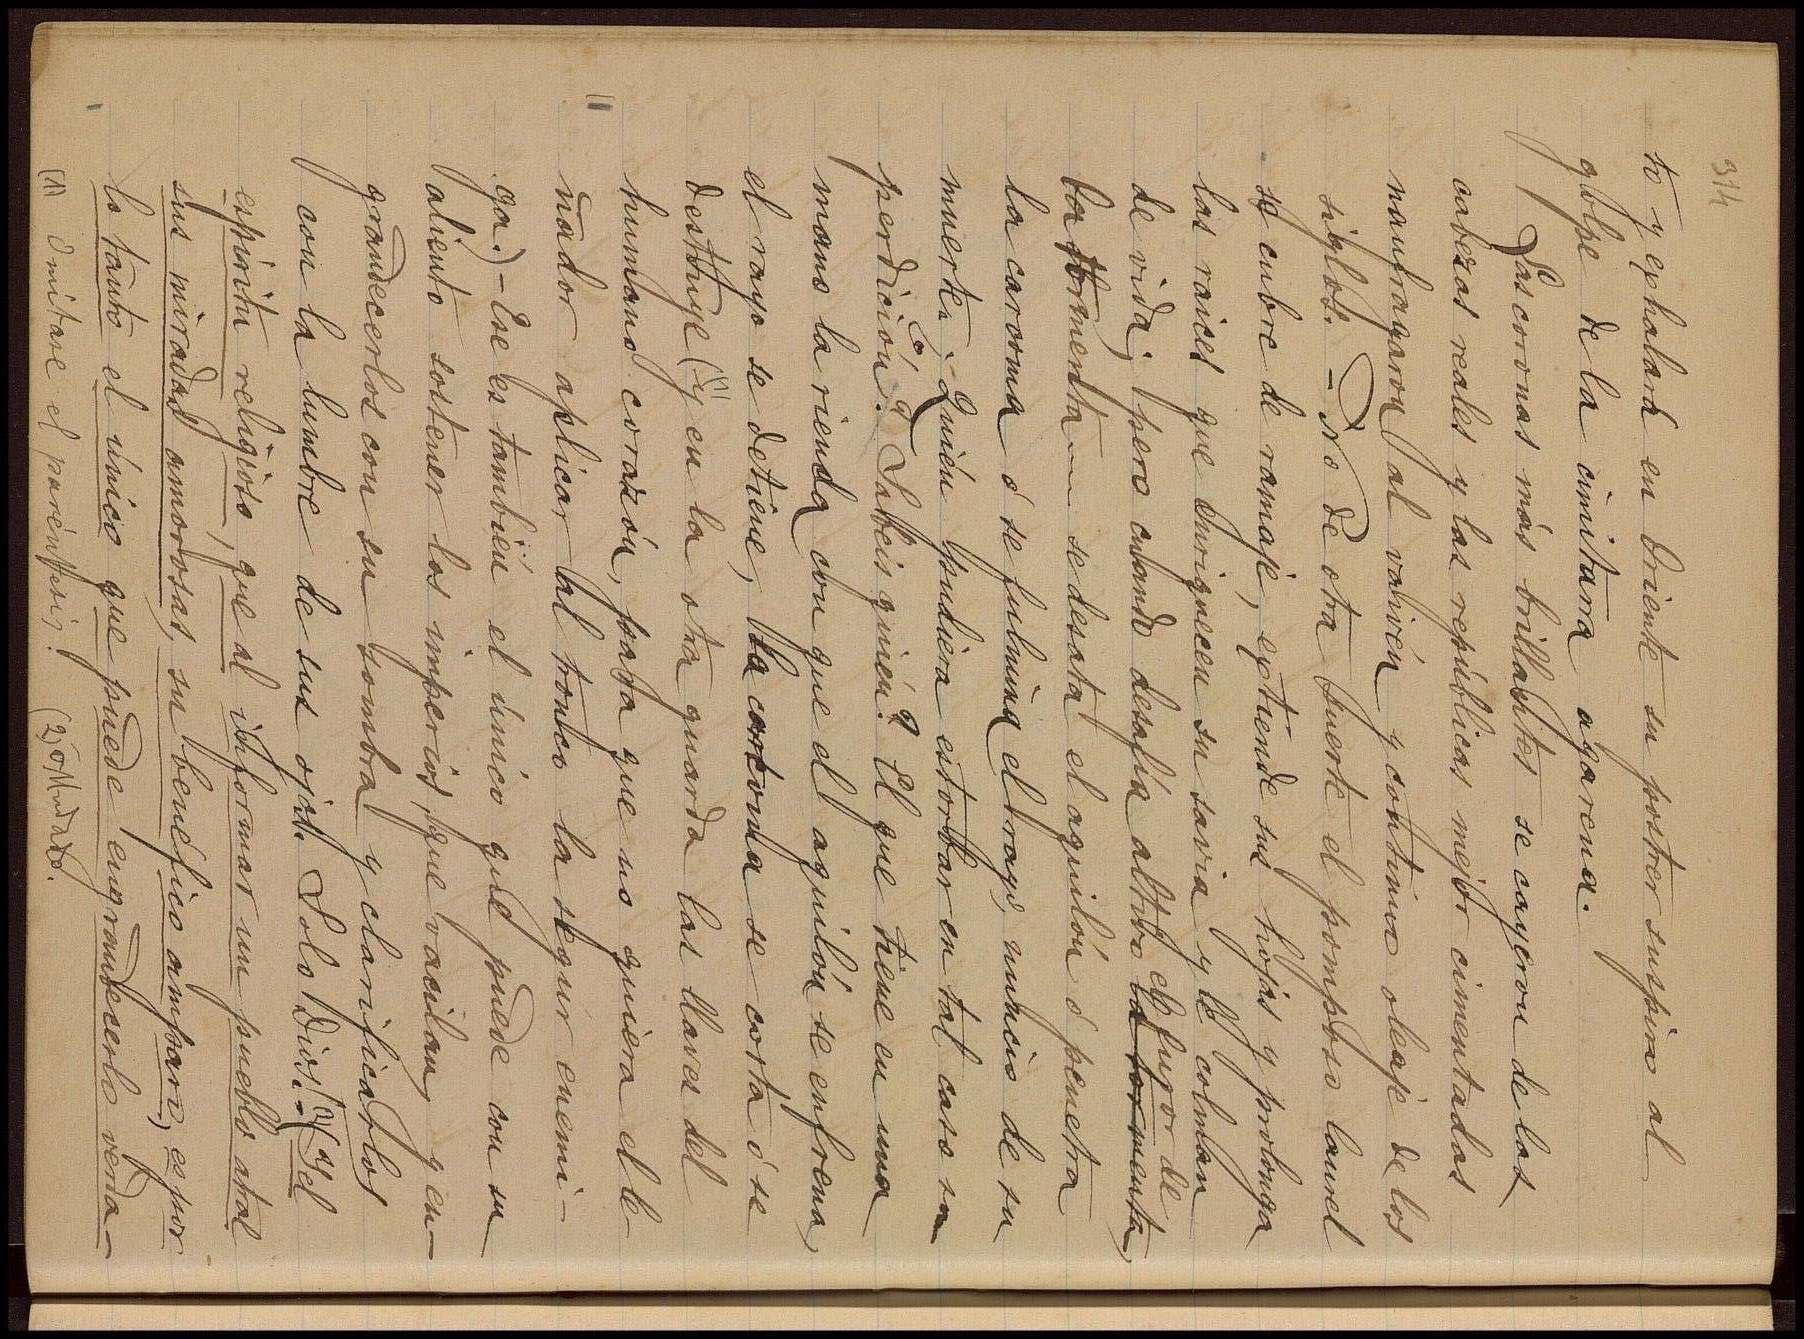 314
to y exhalará en Oriente su postrer suspiro al
golpe de la cimitarra agarena.
Las coronas más brillantes se cayeron de las
cabezas reales y las repúblicas mejor cimentadas
naufragaron al vaivén y continuo oleaje de los
siglos. – No de otra suerte el pomposo laurel
se cubre de ramaje, extiende sus hojas y prolonga
las raices que enriquecen su savia y le colman
de vida; pero cuando desafía altivo el furor de
la tormenta, se desata el aquilón ó penetra
la carcoma ó se fulmina el rayo, nuncio de su
muerte. ¿Quién pudiera estorbar en tal caso su
perdición? ¿Sabeis quién? El que tiene en una
mano la rienda con que el aquilón se enfrena,
el rayo se detiene, la carcoma se corta ó se
destruye (1) (y en la otra guarda las llaves del
humano corazón, para que no quiera el le-
ñador aplicar al tronco la segur enemi-
ga.) – Ese es también el único que puede con su
aliento sostener los imperios que vacilan, y en-
grandecerlos con su sombra y clarificarlos
con la lumbre de sus ojos. Solo Dios! – (2) (Y el
espíritu religioso, que al informar un pueblo atrae
sus miradas amorosas, su benéfico amparo, es por
lo tanto el único que puede engrandecerlo verda-
(1) Omitase el paréntesis. (2) Omitido.